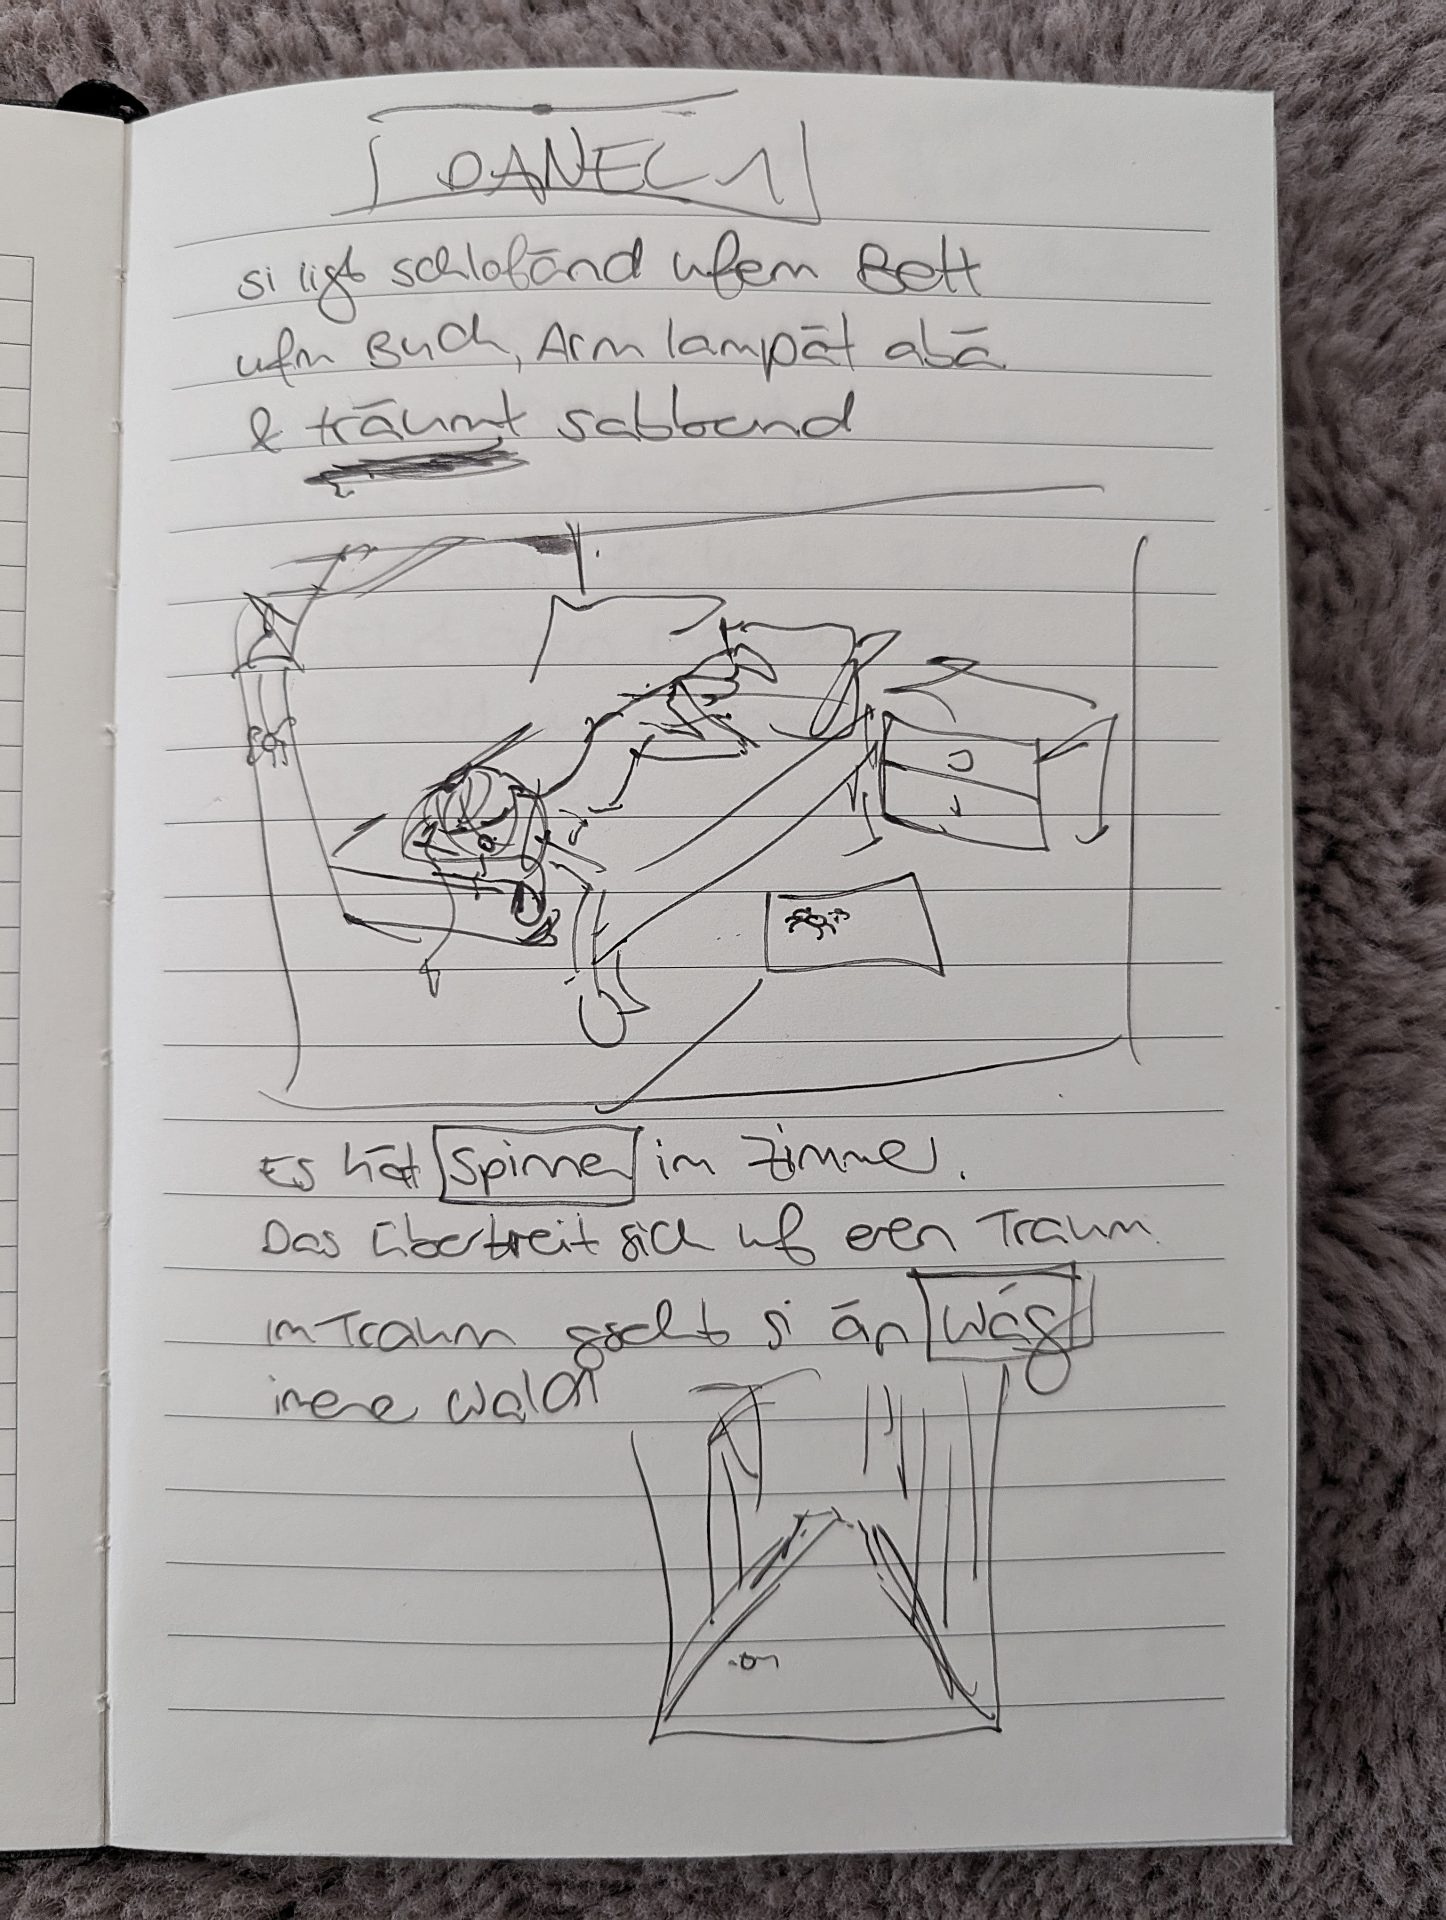 PANEL 1
si ligt schlofänd ufem Bett
ufm Buch, Arm lampät abä
& träumt sabbernd
Es hät Spinne im Zimmer.
Das übertreit sich uf eren Traum.
im Traum gseht si än Wäg
inene Wald